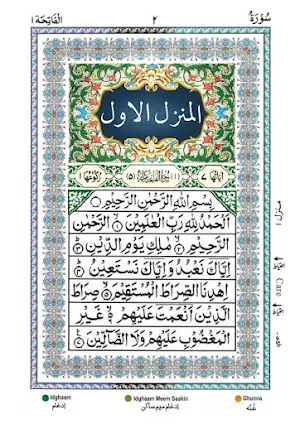 سُوْرَةُ ٢ اَلْفَاتِحَة ١
المنزل الاول
اٰيَاتُهَا ٧ رُكُوْعُهَا ١
بِسْمِ اللّٰهِ الرَّحْمٰنِ الرَّحِيْمِ
اَلْحَمْدُ لِلّٰهِ رَبِّ الْعٰلَمِيْنَ ۝١ الرَّحْمٰنِ
الرَّحِيْمِ ۝٢ مٰلِكِ يَوْمِ الدِّيْنِ ۝٣
اِيَّاكَ نَعْبُدُ وَاِيَّاكَ نَسْتَعِيْنُ ۝٤
اِهْدِنَا الصِّرَاطَ الْمُسْتَقِيْمَ ۝٥ صِرَاطَ
الَّذِيْنَ اَنْعَمْتَ عَلَيْهِمْ ۝٦ غَيْرِ
الْمَغْضُوْبِ عَلَيْهِمْ وَلَا الضَّآلِّيْنَ ۝٧
منزل ١
Idghaam
ادغام
Idghaam Meem Saakin
ادغام میم ساکن
Ghunna
غنه